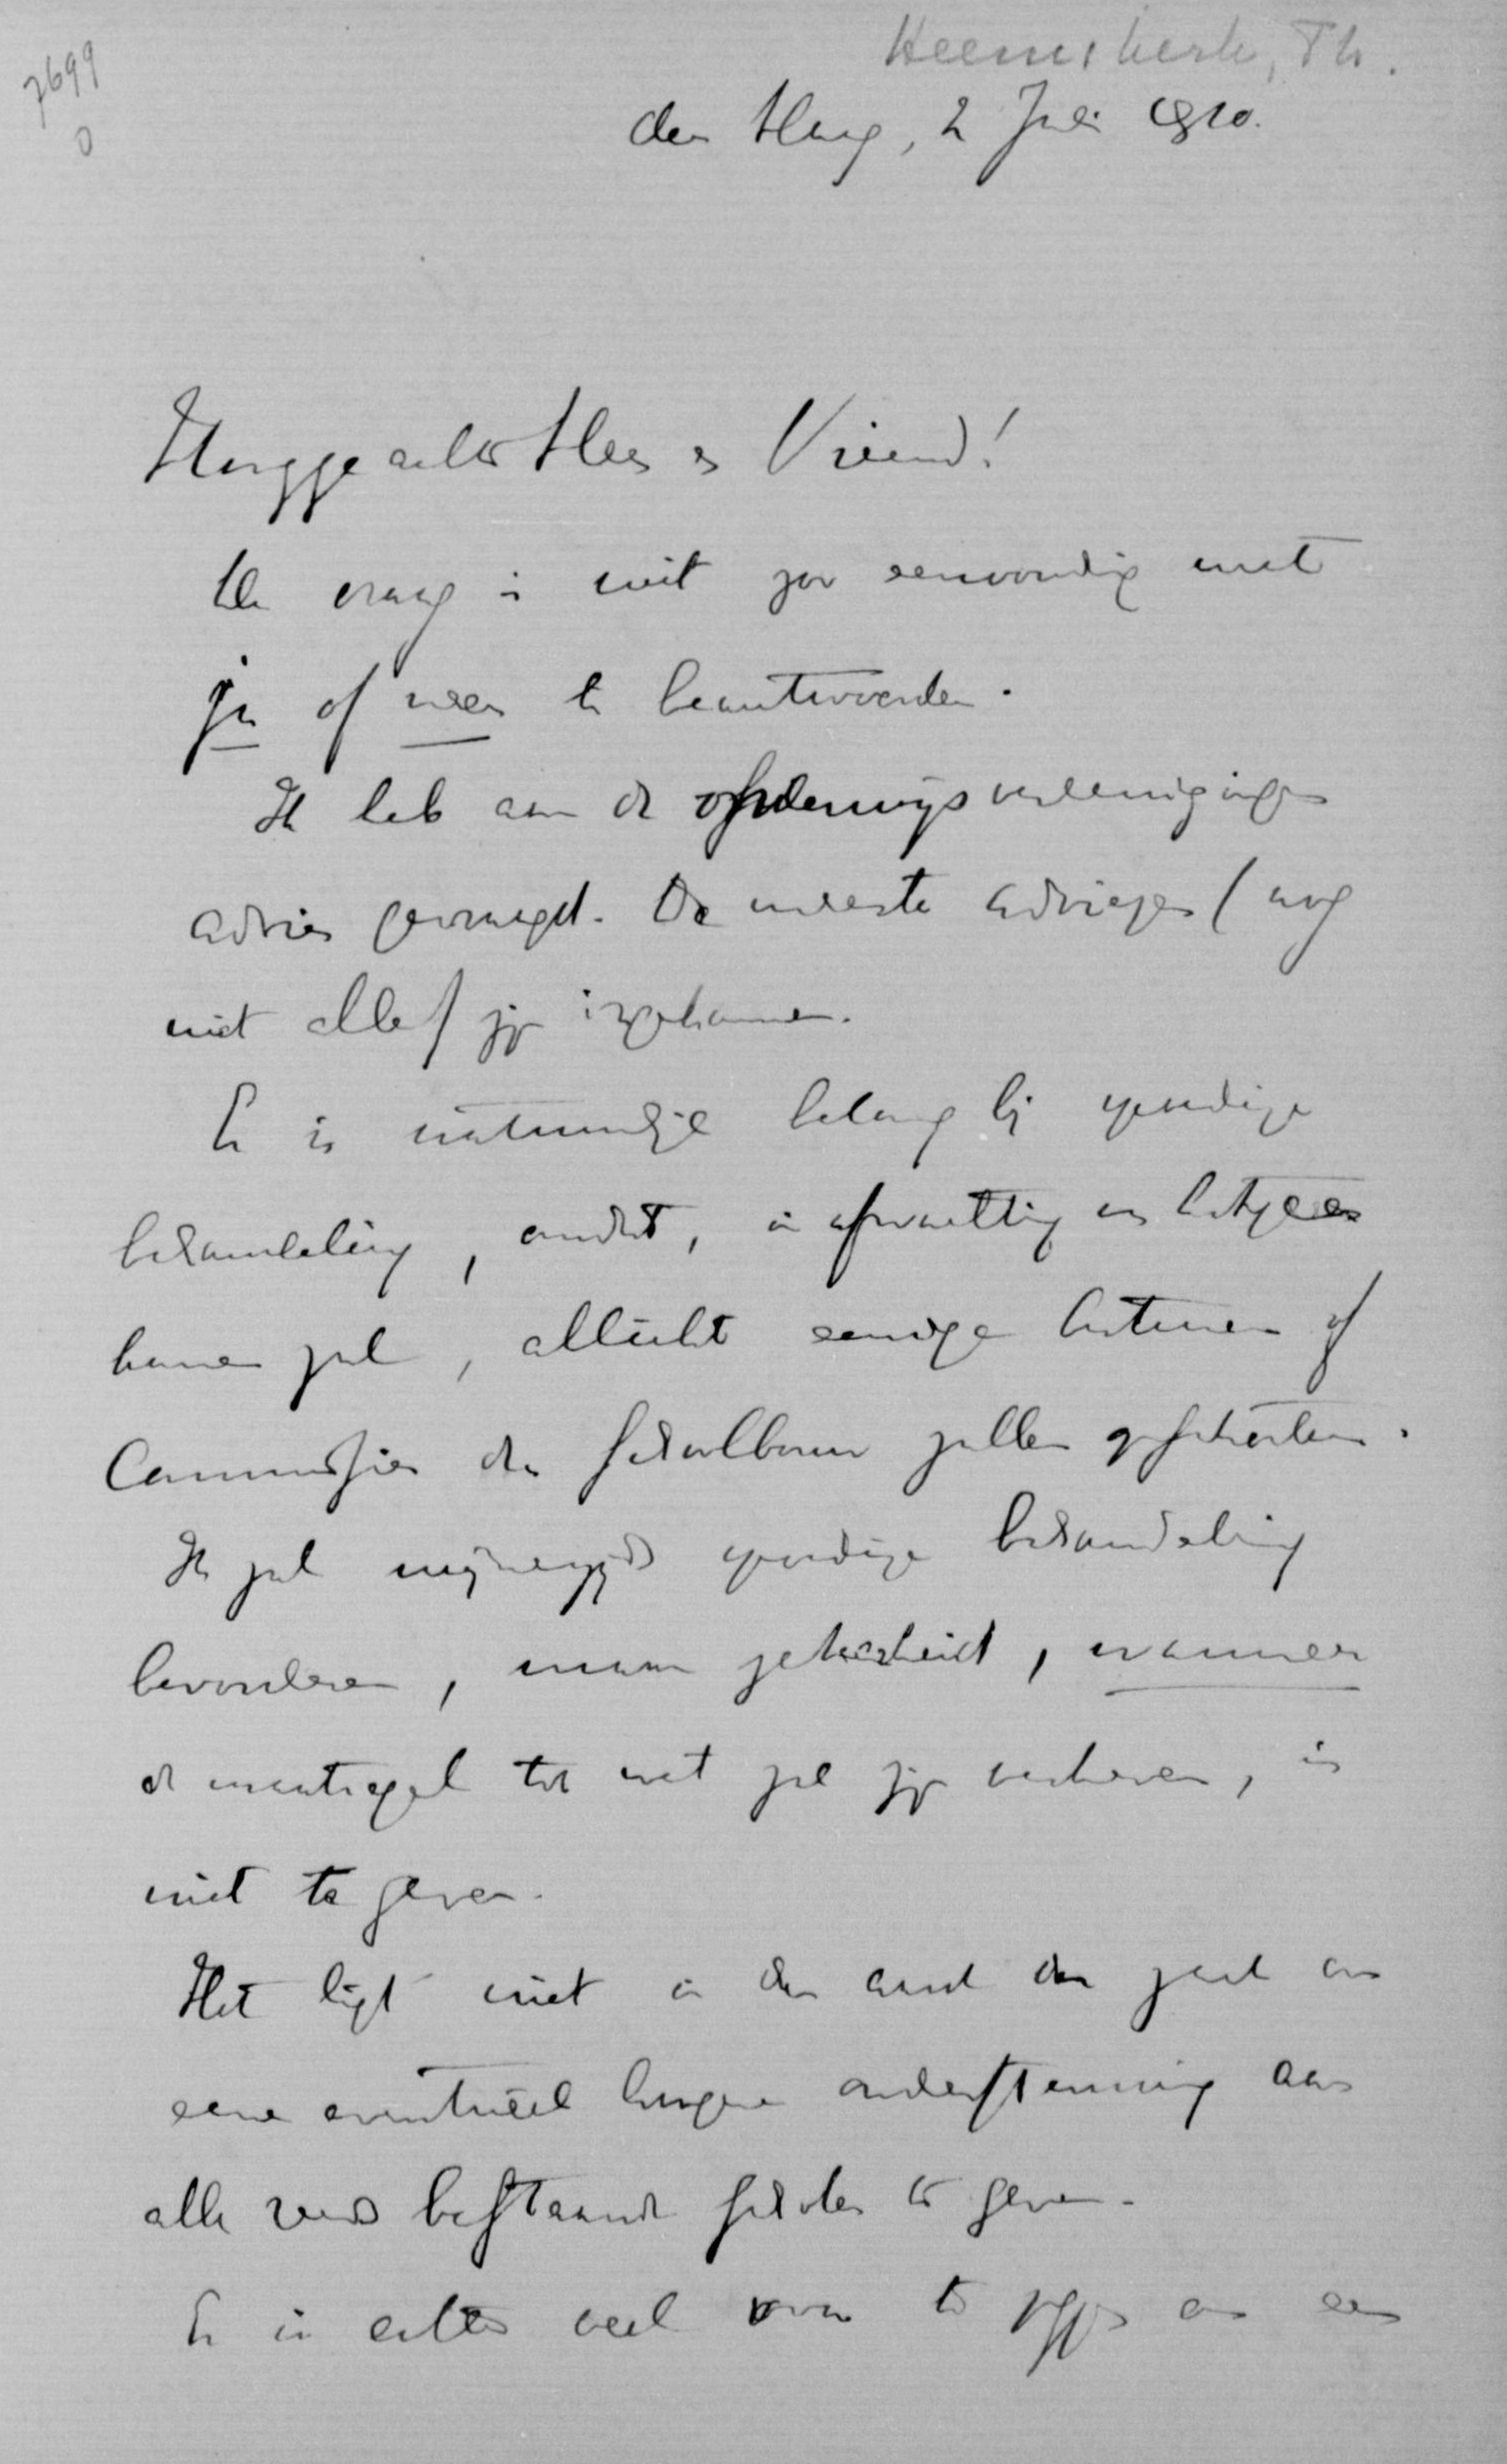 7699
0
Heemskerk, Th.
den Haag, 2 Juli 1910.
Hooggeachte Heer en Vriend!
De vraag is niet zoo eenvoudig met
ja of neen te beantwoorden.
Ik heb aan de onderwijsvereenigingen
advies gevraagd. De meeste adviezen (nog
niet alle) zijn ingekomen.
Er is natuurlijk belang bij spoedige
behandeling, omdat, in afwachting van hetgeen
komen zal, allicht eenige besturen of
Commissies den schoolbouw zullen opschorten.
Ik zal mijnerzijds spoedige behandeling
bevorderen, maar zekerheid, wanneer
de maatregel tot wet zal zijn verheven, is
niet te geven.
Het ligt niet in den aard der zaak om
eene eventueel hoogere ondersteuning aan
alle reeds bestaande scholen te geven.
Er is echter veel voor te zeggen om een